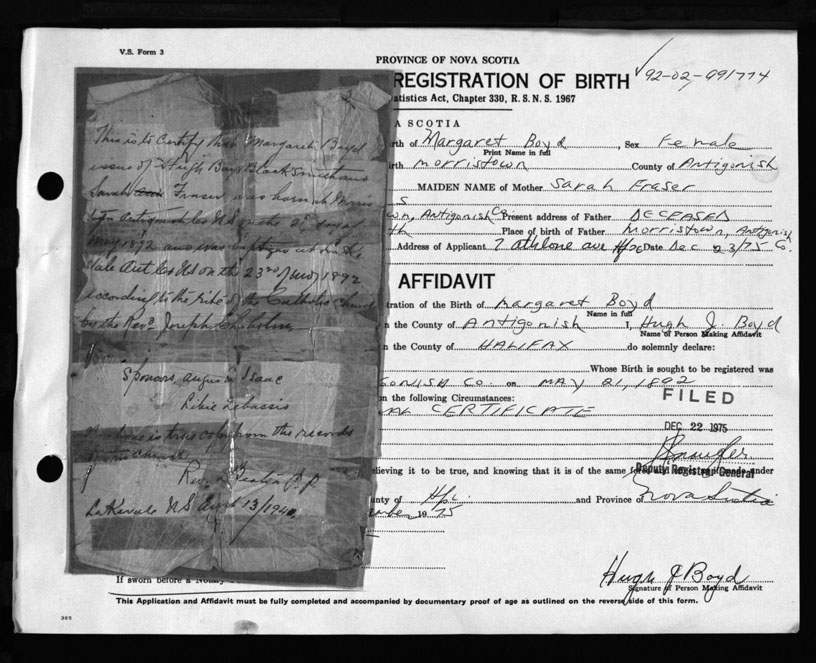 V.S. Form 3
PROVINCE OF NOVA SCOTIA
REGISTRATION OF BIRTH
92-02-
atistics Act, Chapter 330, R.S.N.S. 1967
A SCOTIA
rth of Margaret Boyd, Sex Female
Print Name in full
irth Morristown County of Antigonish
MAIDEN NAME of Mother Sarah Fraser
S
wn, Antigonish Co Present address of Father DECEASED
th Place of birth of Father Morristown, Antigonish
Address of Applicant 7 Athlone ave Hfx Date Dec 23/75
AFFIDAVIT
tration of the Birth of Margaret Boyd
Name in full
n the County of Antigonish I, Hugh J. Boyd
Name of Person Making Affidavit
n the County of HALIFAX do solemnly declare:
Whose Birth is sought to be registered was
GONISH CO. on MAY 21, 1892
n the following Circumstances:
AL CERTIFICATE
FILED
DEC 22 1975
elieving it to be true, and knowing that it is of the same
Deputy Registrar General
under
nty of and Province of Nova Scotia
19 75
Hugh J Boyd
Signature of Person Making Affidavit
If sworn before a Notary
This Application and Affidavit must be fully completed and accompanied by documentary proof of age as outlined on the reverse side of this form.
365
This is to Certify that Margaret Boyd
issue of Hugh Boyd Blacksmith and
Sarah Fraser was born at Morris
town Antigonish Co NS on the
May 1892 and was baptized at
on the 23rd 1892
according to the rite of the Catholic Church
by the Rev. Joseph Chisholm
Sponsors, Angus Isaac
The above is true copy from the records
Rev. P.P.
Lakevale NS April 13/1940